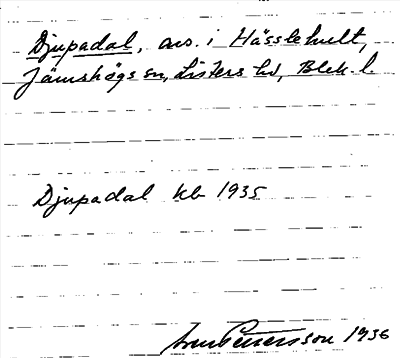 Djupadal, avs. i Hässlehult,
Jämshögs sn, Listers hd, Blek. l.
Djupadal kb 1935
Petersson 1936